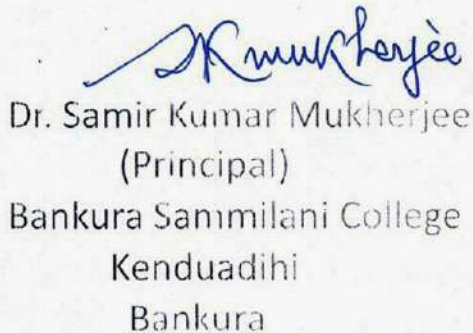 SK Mukherjee
Dr. Samir Kumar Mukherjee
(Principal)
Bankura Sammilani College
Kenduadihi
Bankura